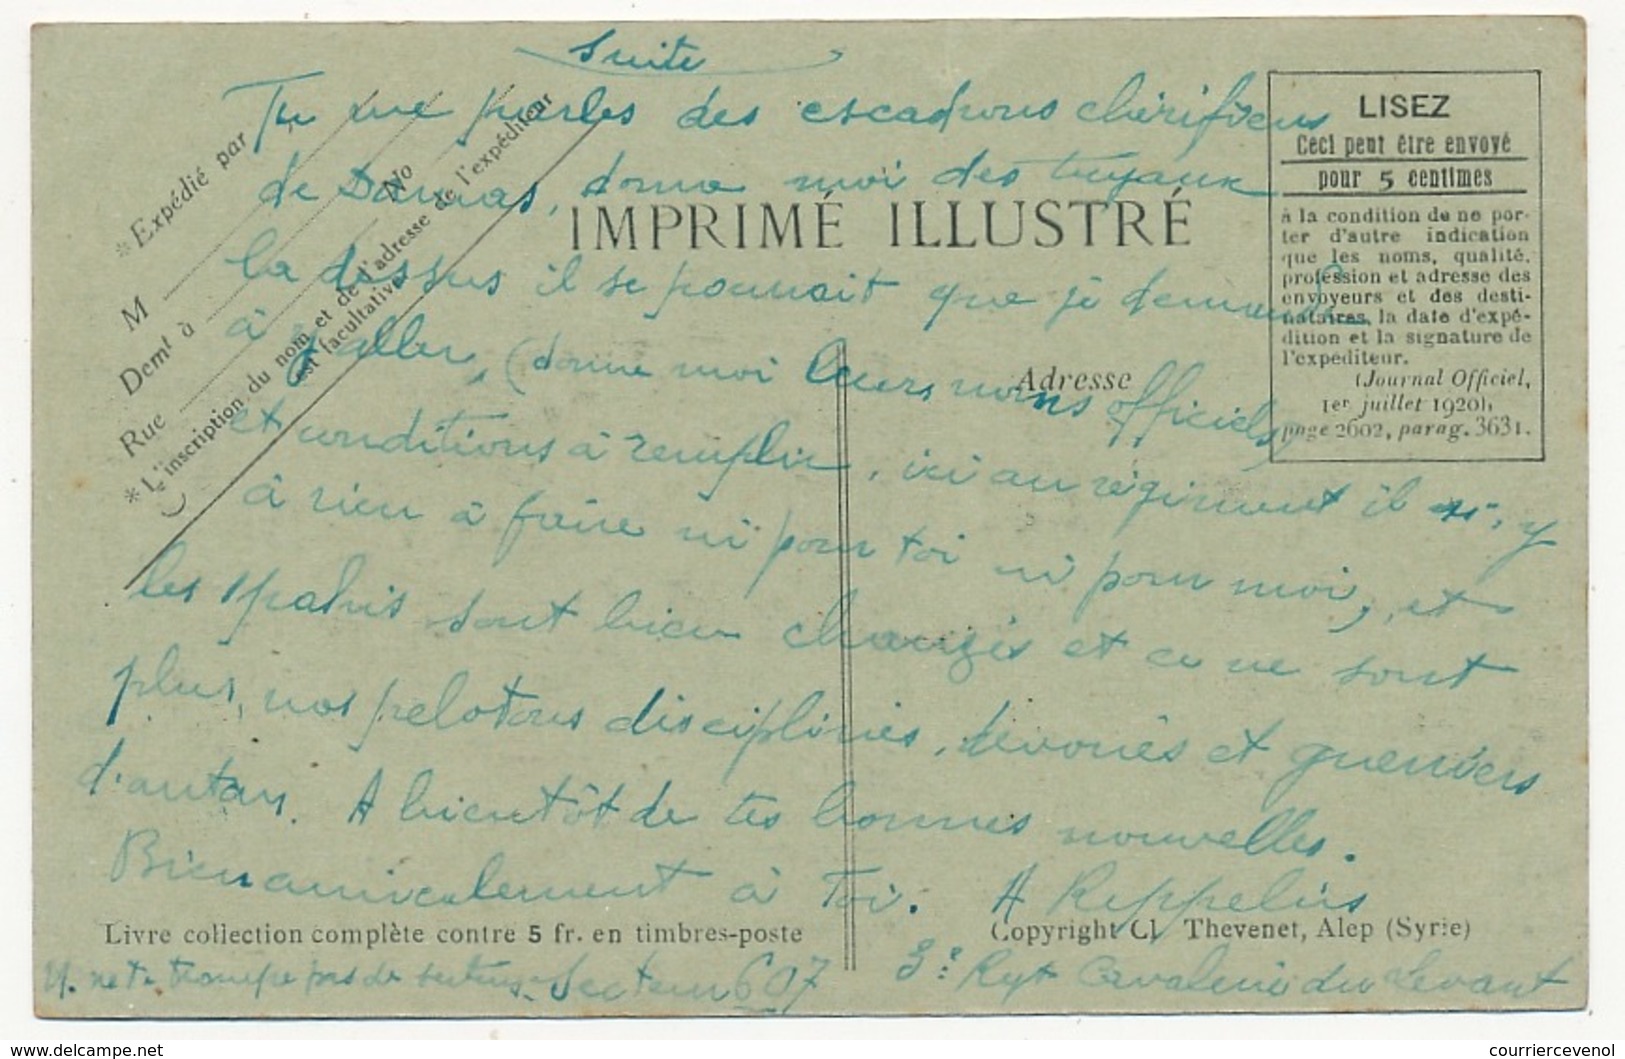 Suite
Tu me parles des escadrons chérifiens
de Damas, donne moi des tuyaux
la dessus il se pourrait que je demande
à y aller, (donne moi leurs noms officiels,
et conditions à remplir, ici au régiment il n'y
à rien à faire ni pour toi ni pour moi, et
les spahis sont bien changés et ce ne sont
plus, nos pelotons disciplinés, dévoués et guerriers
d'antan. A bientôt de tes bonnes nouvelles.
Bien amicalement à toi. A Reppelin
3e Rgt Cavalerie du Levant
ne te trompe pas de secteur Secteur 607
* Expédié par
M No
Demt à
Rue
* L'inscription du nom et de l'adresse de l'expéditeur
est facultative.
IMPRIMÉ ILLUSTRÉ
Adresse
LISEZ
Ceci peut être envoyé
pour 5 centimes
à la condition de ne por-
ter d'autre indication
que les noms, qualité,
profession et adresse des
envoyeurs et des desti-
nataires, la date d'expé-
dition et la signature de
l'expéditeur.
(Journal Officiel,
1er juillet 1920),
page 2602, parag. 3631.
Livre collection complète contre 5 fr. en timbres-poste
Copyright Cl. Thevenet, Alep (Syrie)
www.delcampe.net
courriercevenol